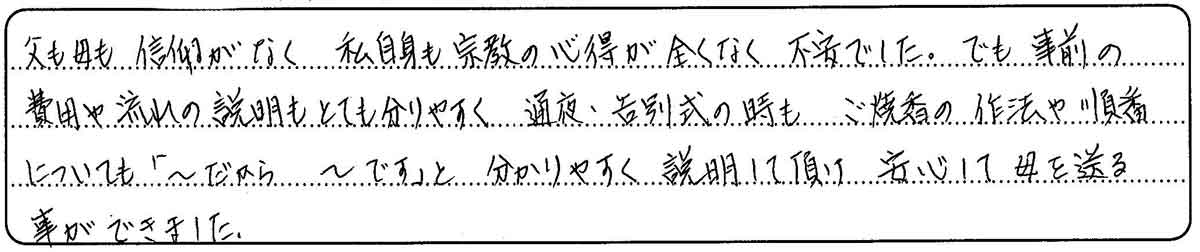 父も母も 信仰がなく 私自身も宗教の心得が全くなく 不安でした。でも 事前の
費用や流れの説明もとても分りやすく 通夜・告別式の時も ご焼香の作法や順番
についても「〜だから 〜です」と 分かりやすく 説明して頂け 安心して 母を送る
事ができました。